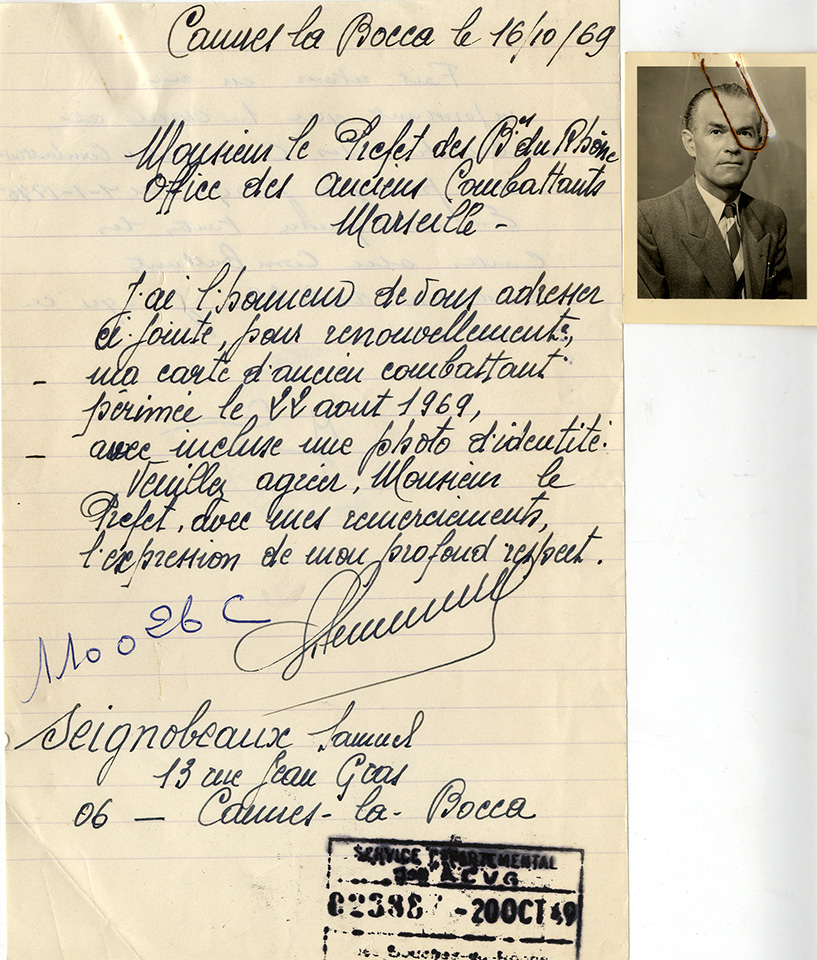 Cannes la Bocca le 16/10/69
Monsieur le Prefet des B.es du Rhône
Office des anciens Combattants
Marseille -
J'ai l'honneur de vous adresser
ci jointe, pour renouvellement,
- ma carte d'ancien combattant
périmée le 22 aout 1969,
- avec incluse une photo d'identité.
Veuillez agréer, Monsieur le
Prefet, avec mes remerciements,
l'expression de mon profond respect.
110026 C
Seignobeaux Samuel
13 rue Jean Gras
06 - Cannes-la-Bocca
SERVICE DEPARTEMENTAL
A.C.V.G
-20 OCT 49